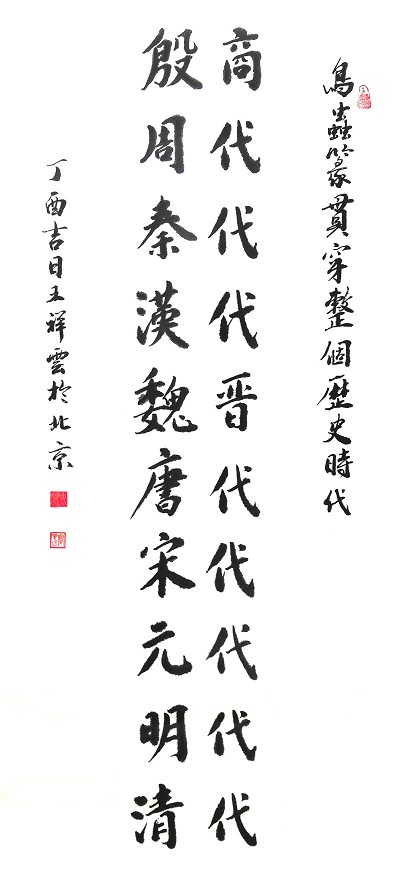 鳥蟲篆貫穿整個歷史時代
殷商
周代
秦代
漢代
魏晋
唐代
宋代
元代
明代
清代
丁酉吉日王祥雲於北京